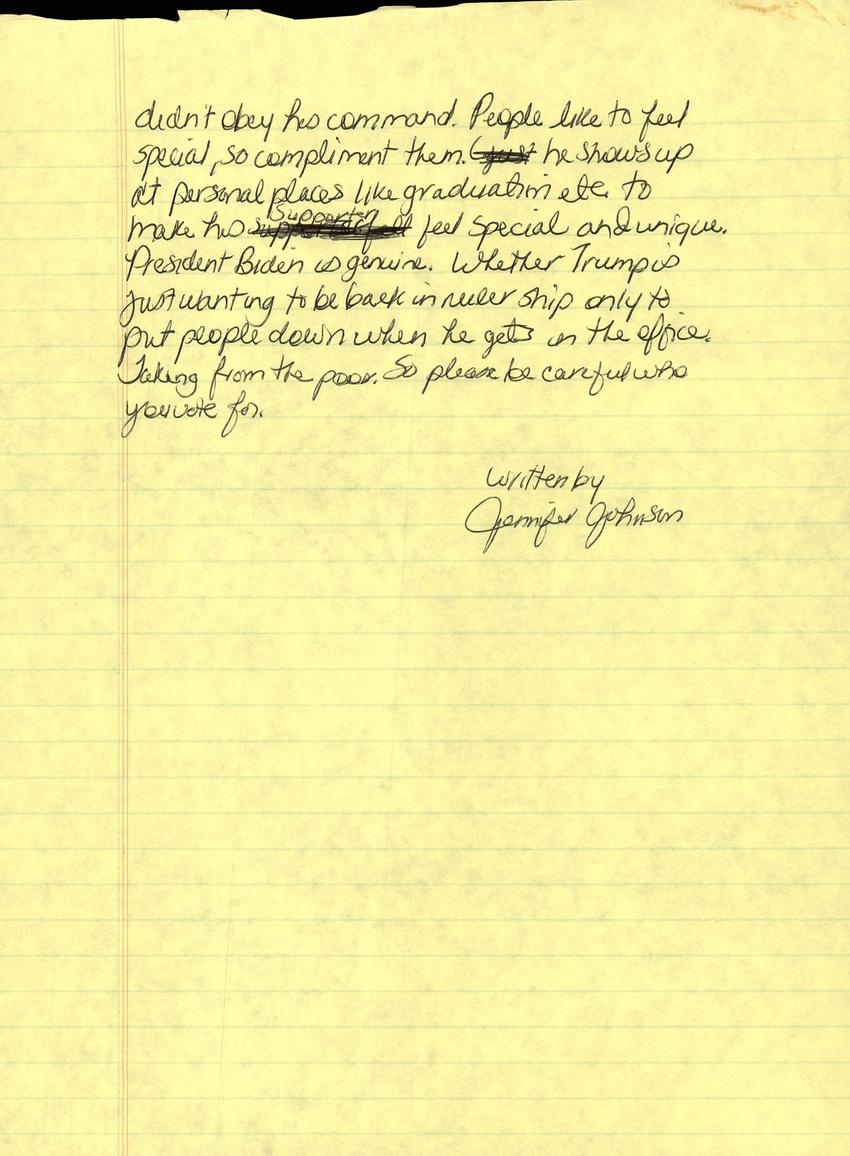 didn't obey his command. People like to feel
special, so compliment them. he shows up
at personal places like graduation etc. to
make his supporter feel special and unique.
President Biden is genuine. Whether Trump is
just wanting to be back in ruler ship only to
put people down when he gets in the office.
Taking from the poor. So please be careful who
you vote for.
written by
Jennifer Johnson